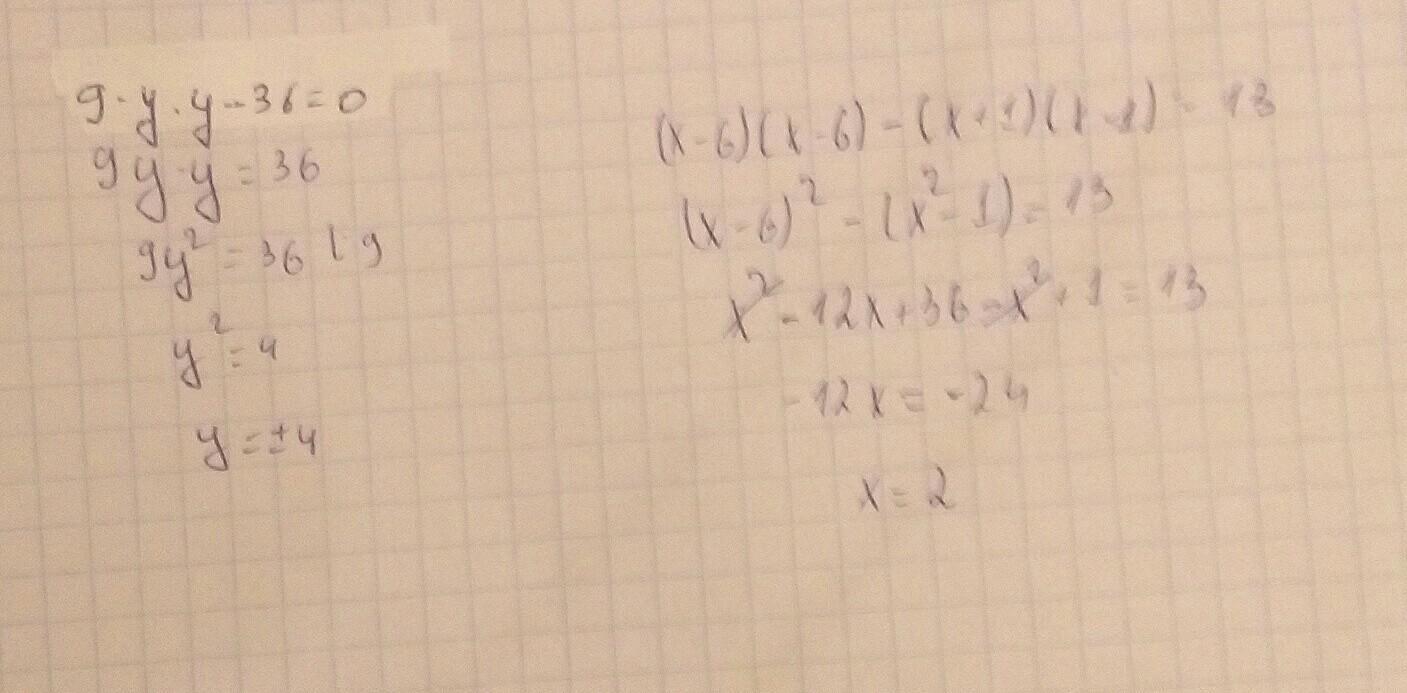 9·y·y-36=0
9y·y=36
9y²=36 | 9
y²=4
y=±4
(x-6)(x-6)-(x+1)(x-1)=13
(x-6)²-(x²-1)=13
x²-12x+36-x²+1=13
-12x=-24
x=2